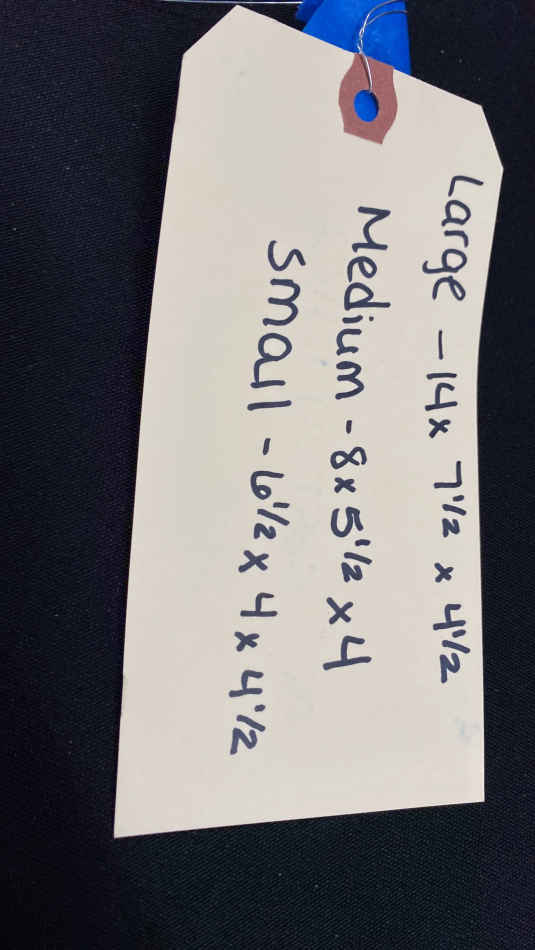 Large - 14 x 7 1/2 x 4 1/2
Medium - 8 x 5 1/2 x 4
Small - 6 1/2 x 4 x 4 1/2